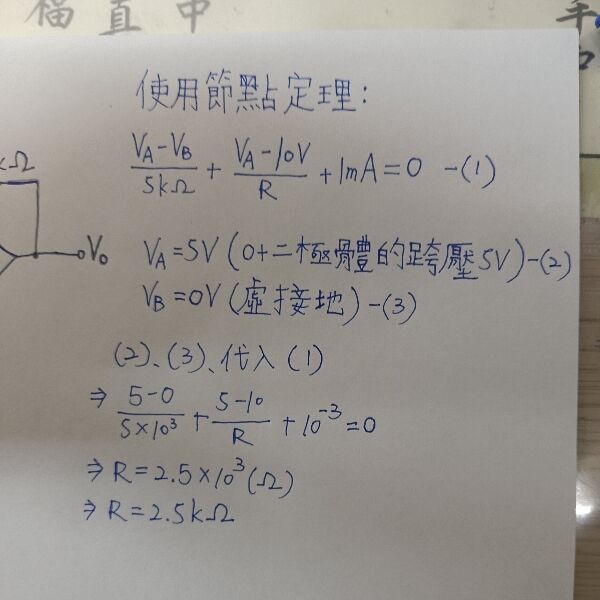 福直中
使用節點定理:
kΩ
(VA-VB)/5kΩ + (VA-10V)/R + 1mA = 0 -(1)
Vo
VA=5V(0+二極體的跨壓5V)-(2)
VB=0V(虛接地)-(3)
(2)、(3)、代入(1)
⇒ (5-0)/(5×10³) + (5-10)/R + 10⁻³=0
⇒ R=2.5×10³(Ω)
⇒ R=2.5kΩ